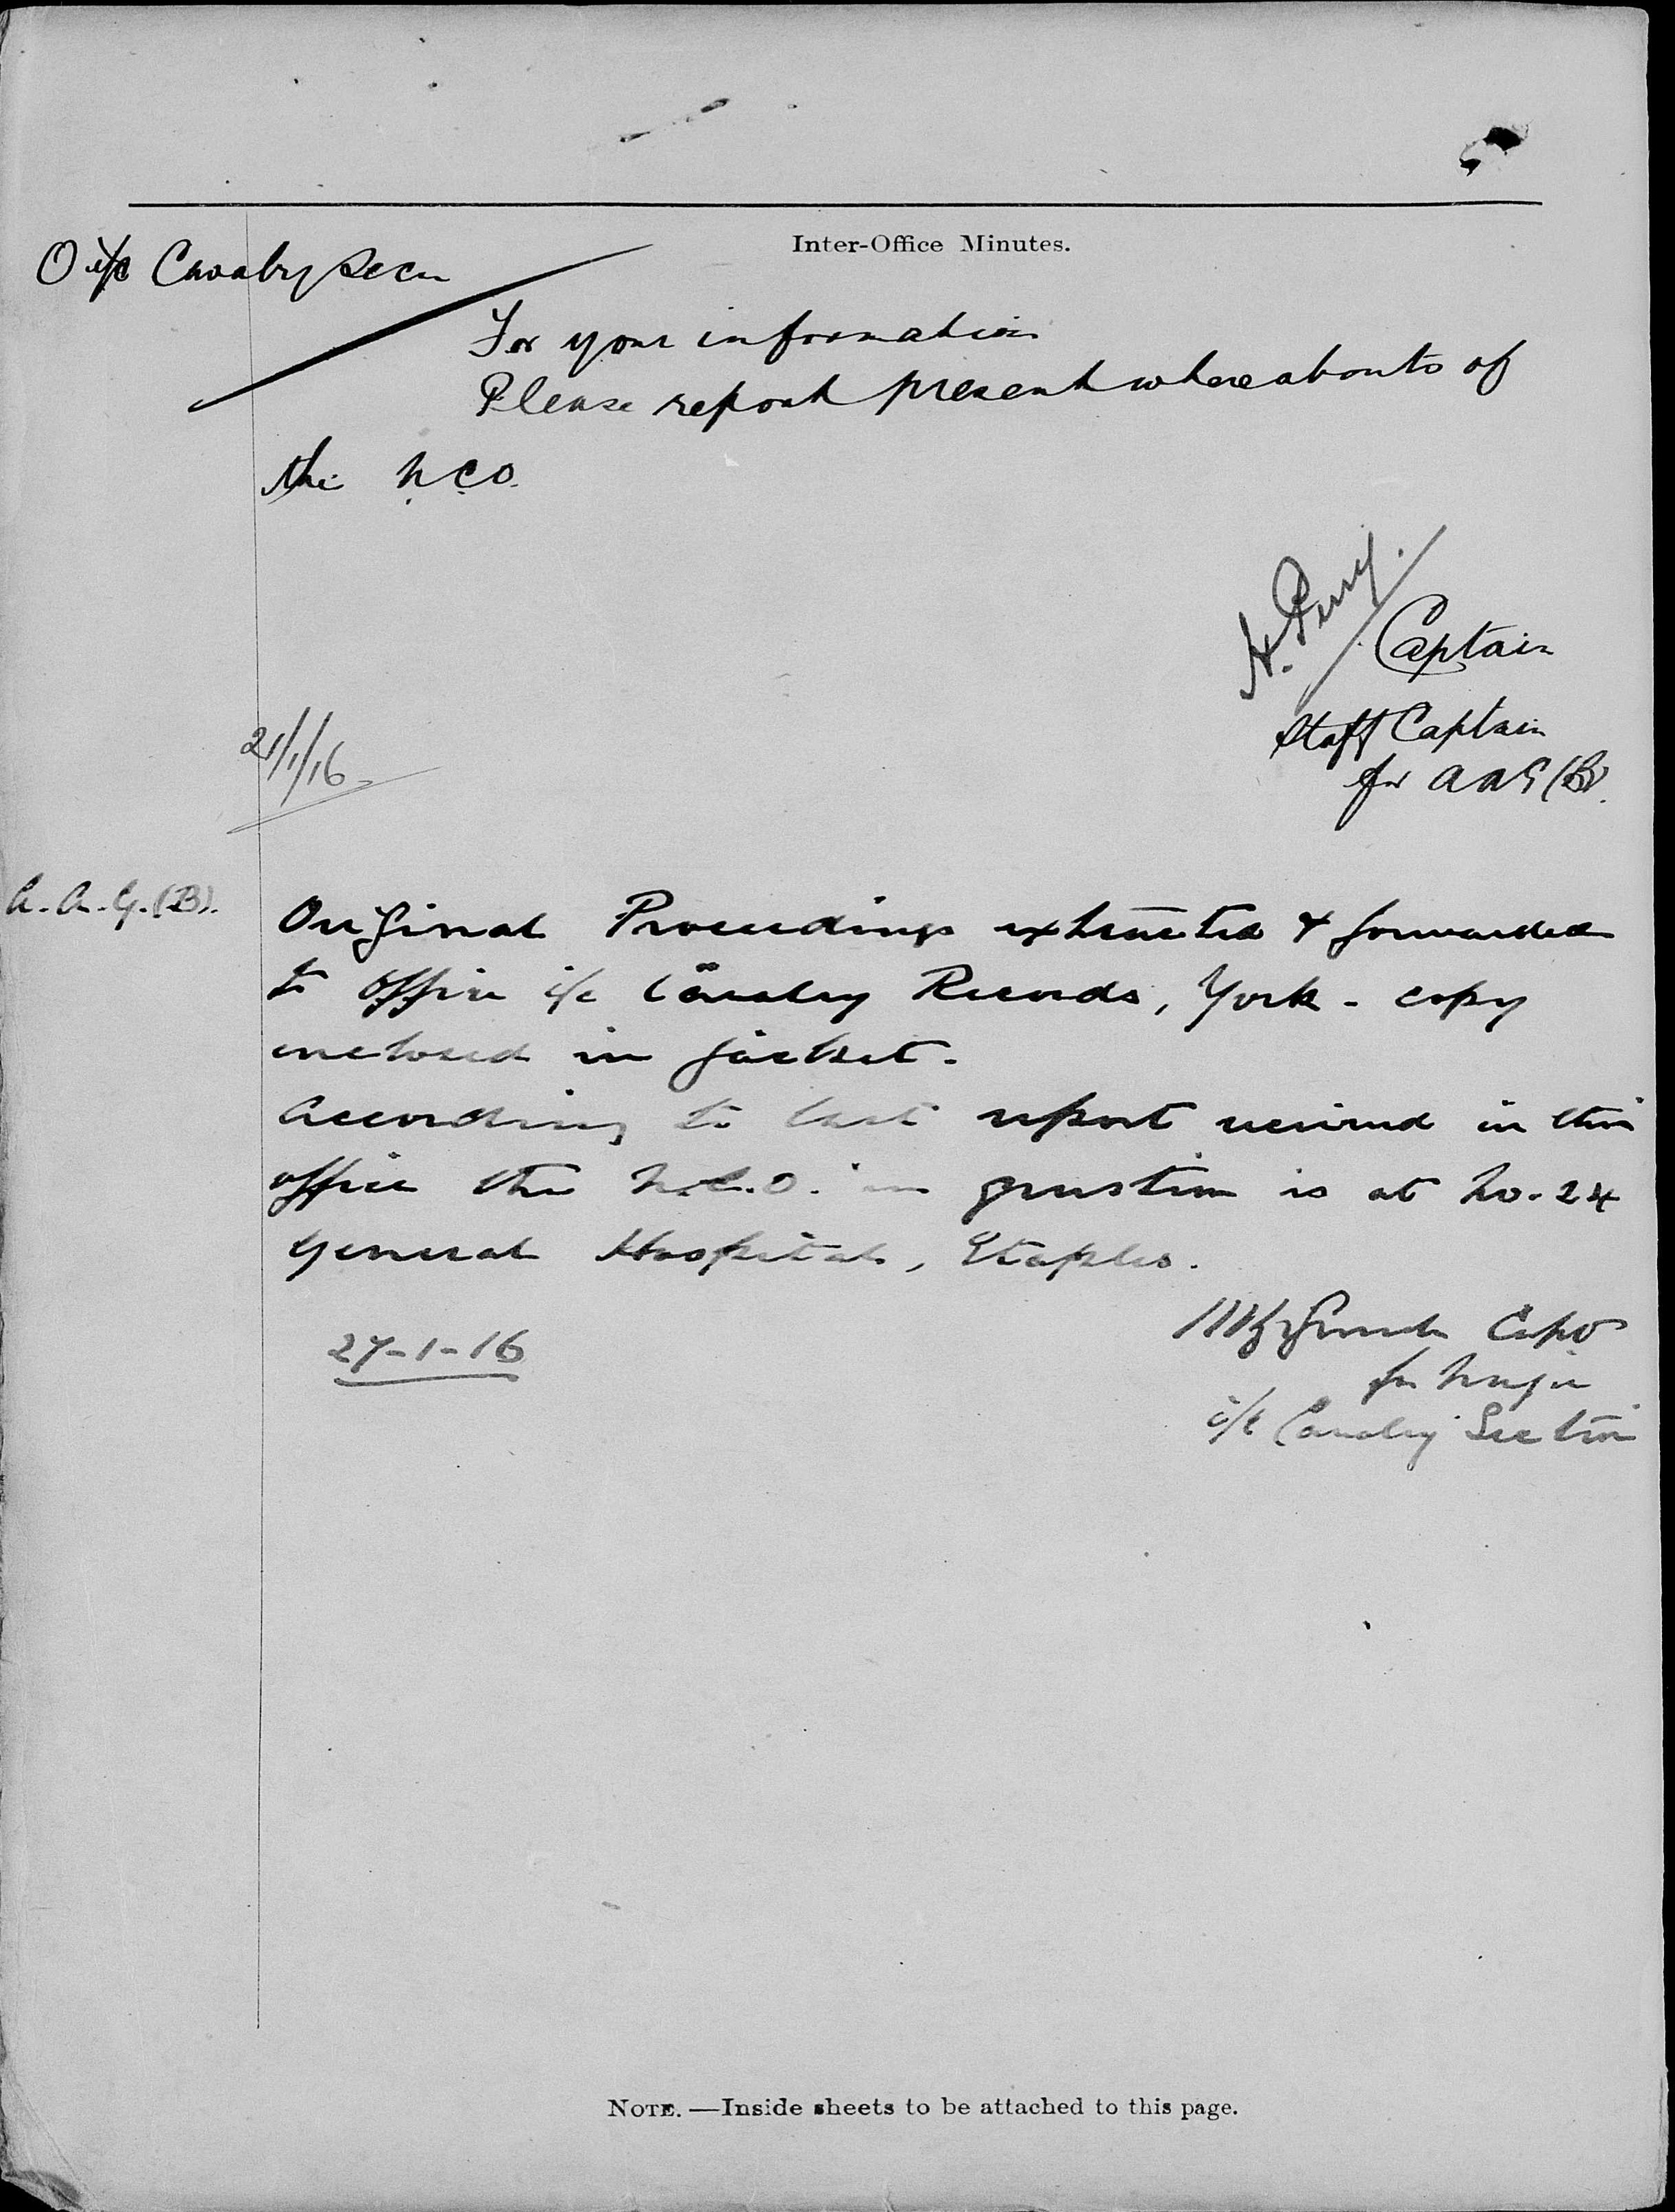 Inter-Office Minutes.
O i/c Cavalry Secn
For your information
Please report present whereabouts of
the N.C.O.
H. Perry.
Captain
Staff Captain
for AAG (B).
21/1/16
A.A.G.(B).
Original Proceedings extracted & forwarded
to Office i/c Cavalry Records, York - copy
enclosed in jacket.
According to last report received in this
office the N.C.O. in question is at No. 24
General Hospital, Etaples.
Capt
for Major
i/c Cavalry Section
27-1-16
NOTE.—Inside sheets to be attached to this page.